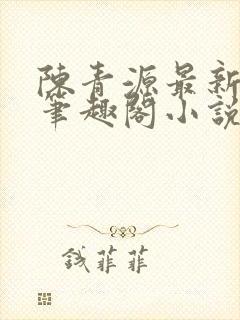 陳青源最新
筆趣閣小說
錢菲菲